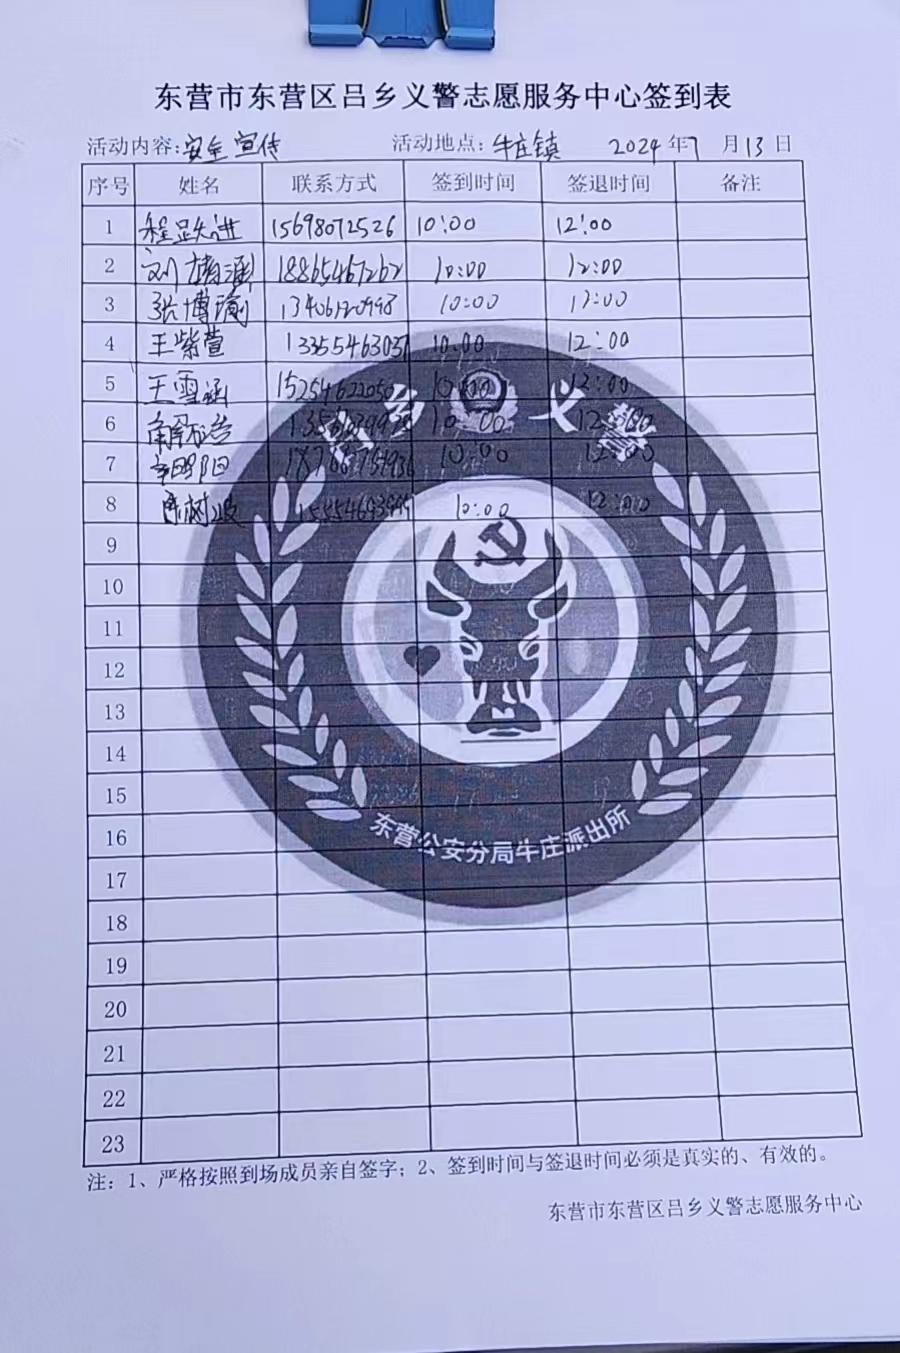 东营市东营区吕乡义警志愿服务中心签到表
活动内容:安全宣传 活动地点:牛庄镇 2024年7月13日
序号 姓名 联系方式 签到时间 签退时间 备注
1 程跃进 15698072526 10:00 12:00
2 刘 18865461262 10:00 12:00
3 张博瑜 13406120998 10:00 12:00
4 王紫萱 1335546303 10:00 12:00
5 王雪涵 1525462205 10:00 12:00
6 10:00 12:00
7 10:00 12:00
8 10:00 12:00
9
10
11
12
13
14
15
16
17
18
19
20
21
22
23
吕乡义警
东营公安分局牛庄派出所
注:1、严格按照到场成员亲自签字;2、签到时间与签退时间必须是真实的、有效的。
东营市东营区吕乡义警志愿服务中心